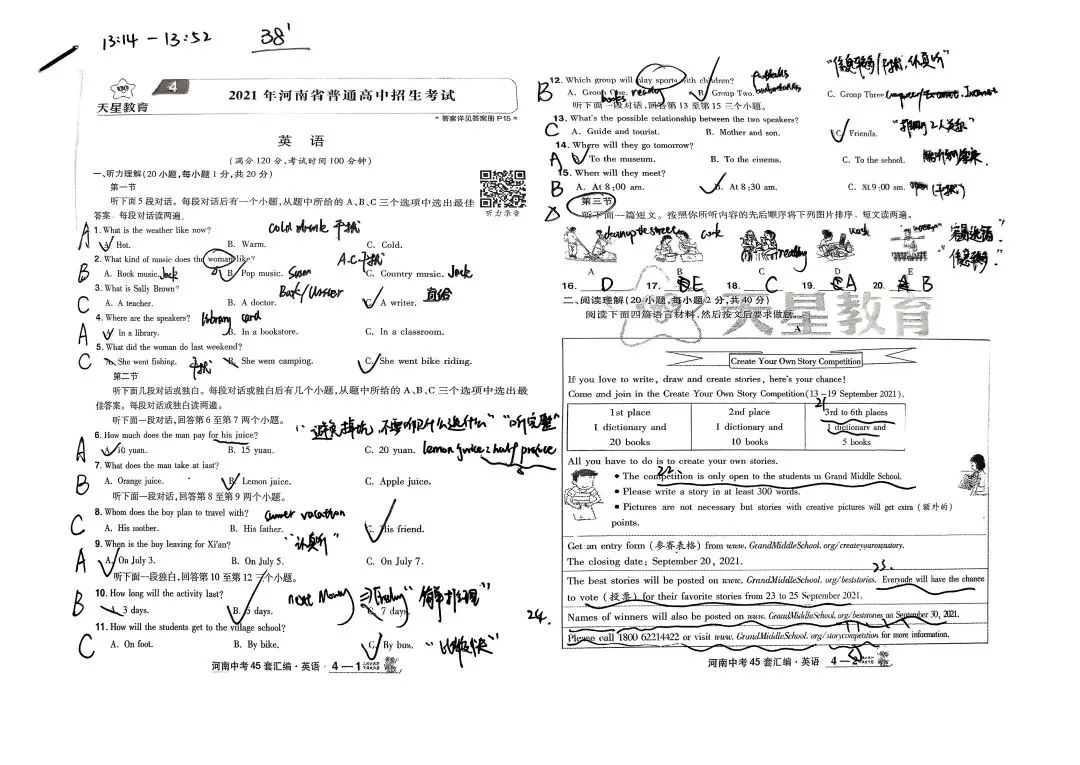 13:14 - 13:52 38'
4
天星教育
2021 年河南省普通高中招生考试
* 答案详见答案册 P15 *
英 语
(满分 120 分,考试时间 100 分钟)
一、听力理解(20 小题,每小题 1 分,共 20 分)
第一节
听下面 5 段对话。每段对话后有一个小题,从题中所给的 A、B、C 三个选项中选出最佳
答案。每段对话读两遍。
听力录音
A 1. What is the weather like now? cold drink 干扰
A. Hot. B. Warm. C. Cold.
2. What kind of music does the woman like? A.C 干扰
B A. Rock music. Jack B. Pop music. Susan C. Country music. Jack
3. What is Sally Brown?
C A. A teacher. B. A doctor. C. A writer.
4. Where are the speakers? library card
A A. In a library. B. In a bookstore. C. In a classroom.
5. What did the woman do last weekend?
C A. She went fishing. 干扰 B. She went camping. C. She went bike riding.
第二节
听下面几段对话或独白。每段对话或独白后有几个小题,从题中所给的 A、B、C 三个选项中选出最
佳答案。每段对话或独白读两遍。
听下面一段对话,回答第 6 至第 7 两个小题。
6. How much does the man pay for his juice? "听完整"
A A. 10 yuan. B. 15 yuan. C. 20 yuan. lemon juice: half price
7. What does the man take at last?
B A. Orange juice. B. Lemon juice. C. Apple juice.
听下面一段对话,回答第 8 至第 9 两个小题。
8. Whom does the boy plan to travel with? vacation
C A. His mother. B. His father. C. His friend.
9. When is the boy leaving for Xi'an? "认真听"
A A. On July 3. B. On July 5. C. On July 7.
听下面一段独白,回答第 10 至第 12 三个小题。
10. How long will the activity last? next Monday
B A. 3 days. B. 5 days. C. 7 days.
11. How will the students get to the village school?
C A. On foot. B. By bike. C. By bus.
河南中考 45 套汇编·英语 4 — 1
12. Which group will play sports with children?
B A. Group One. B. Group Two. C. Group Three.
听下面一段对话,回答第 13 至第 15 三个小题。
13. What's the possible relationship between the two speakers?
C A. Guide and tourist. B. Mother and son. C. Friends.
14. Where will they go tomorrow?
A A. To the museum. B. To the cinema. C. To the school.
15. When will they meet?
B A. At 8:00 am. B. At 8:30 am. C. At 9:00 am. (干扰)
第三节
听下面一篇短文。按照你所听内容的先后顺序将下列图片排序。短文读两遍。
clean up the street cook reading
A B C D E
16. D 17. E 18. C 19. A 20. B
二、阅读理解(20 小题,每小题 2 分,共 40 分)
阅读下面四篇语言材料,然后按文后要求做题。
天星教育
A
Create Your Own Story Competition
If you love to write, draw and create stories, here's your chance!
Come and join in the Create Your Own Story Competition(13 -19 September 2021).
21
1st place 2nd place 3rd to 6th places
1 dictionary and 1 dictionary and 1 dictionary and
20 books 10 books 5 books
All you have to do is to create your own stories.
22.
• The competition is only open to the students in Grand Middle School.
• Please write a story in at least 300 words.
• Pictures are not necessary but stories with creative pictures will get extra (额外的)
points.
Get an entry form (参赛表格) from www. GrandMiddleSchool. org/createyourownstory.
The closing date: September 20, 2021.
23.
The best stories will be posted on www. GrandMiddleSchool. org/beststories. Everyone will have the chance
to vote (投票) for their favorite stories from 23 to 25 September 2021.
24.
Names of winners will also be posted on www. GrandMiddleSchool. org/beststories on September 30, 2021.
Please call 1800 62214422 or visit www. GrandMiddleSchool. org/storycompetition for more information.
河南中考 45 套汇编·英语 4 — 2